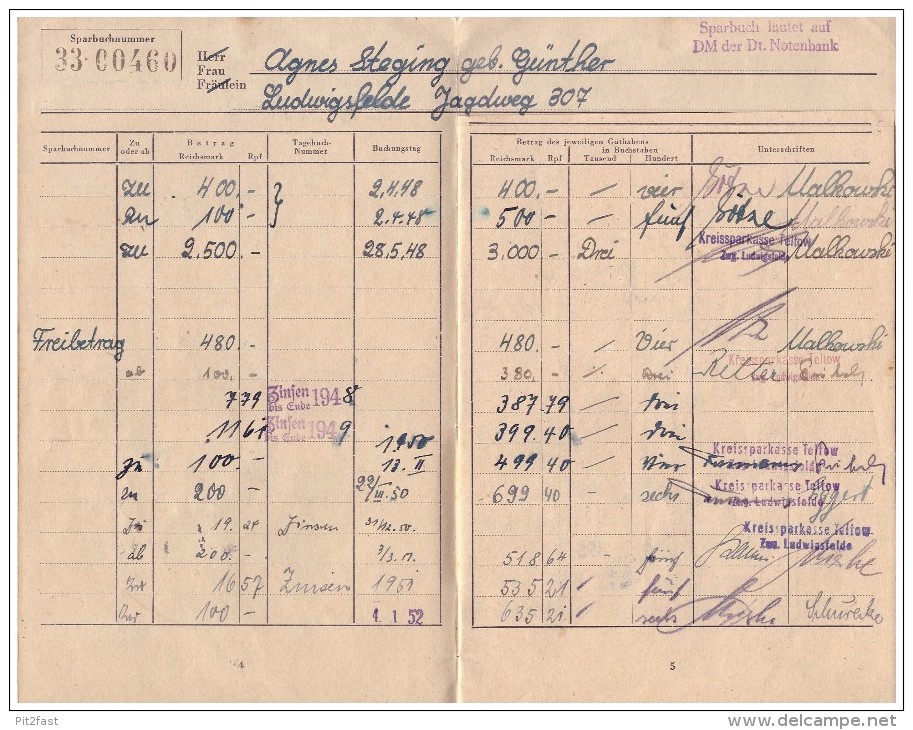 Sparbuchnummer
33·00460
Herr
Frau
Fräulein
Agnes Steging geb. Günther
Ludwigsfelde Jagdweg 307
Sparbuch lautet auf
DM der Dt. Notenbank
Sparbuchnummer Zu oder ab Betrag Reichsmark Rpf Tagebuch-Nummer Buchungstag Betrag des jeweiligen Guthabens in Buchstaben Reichsmark Rpf Tausend Hundert Unterschriften
zu 400.- 2.4.48 400.- / vier Götze Malkowski
zu 100.- 2.4.48 500 - / fünf Götze Malkowski
zu 2.500.- 28.5.48 3.000 - Drei Malkowski
Kreissparkasse Teltow
Zwg. Ludwigsfelde
Freibetrag 480.- 480.- / Vier Malkowski
Kreissparkasse Teltow
Zwg. Ludwigsfelde
ab 100.- 380.- / drei Retter
7 79 Zinsen bis Ende 1948 387 79 / drei
11 61 Zinsen bis Ende 1949 399.40 / drei
zu 100.- 1950 13.II 499 40 / vier
Kreissparkasse Teltow
Zwg. Ludwigsfelde
zu 200 - 22/III.50 699 40 - sechs Eggert
Kreissparkasse Teltow
Zwg. Ludwigsfelde
19.24 Zinsen 31/12.50.
Kreissparkasse Teltow
Zwg. Ludwigsfelde
ab 200.- 518 64 / fünf
16 57 Zinsen 1951 535 21 / fünf
100 - 4.1.52 635 21 / sechs
4
5
Pit2fast
www.delcampe.net